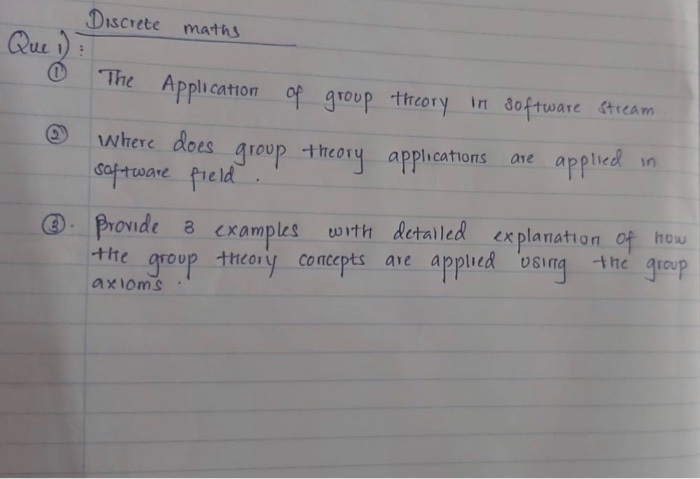 Discrete maths
Que 1) :
① The Application of group theory in software stream
② Where does group theory applications are applied in
software field .
③. Provide 3 examples with detailed explanation of how
the group theory concepts are applied using the group
axioms .